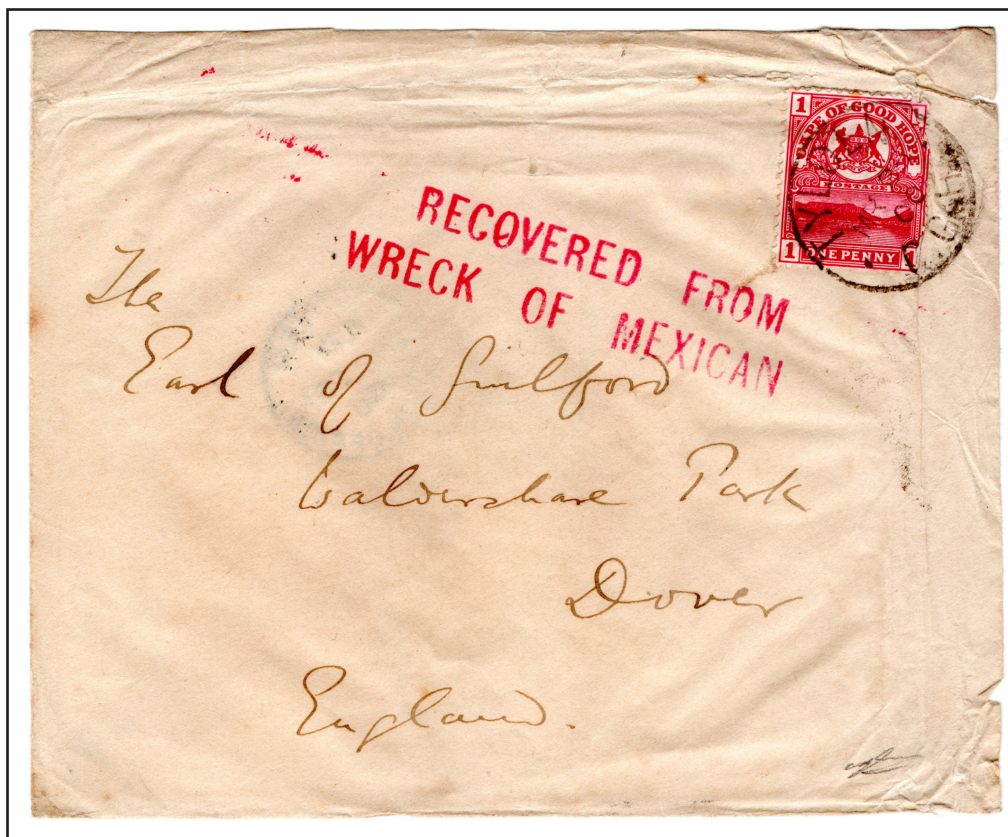 1 1
CAPE OF GOOD HOPE
POSTAGE
1 ONE PENNY 1
RECOVERED FROM
WRECK OF MEXICAN
The
Earl of Guilford
Waldershare Park
Dover
England.